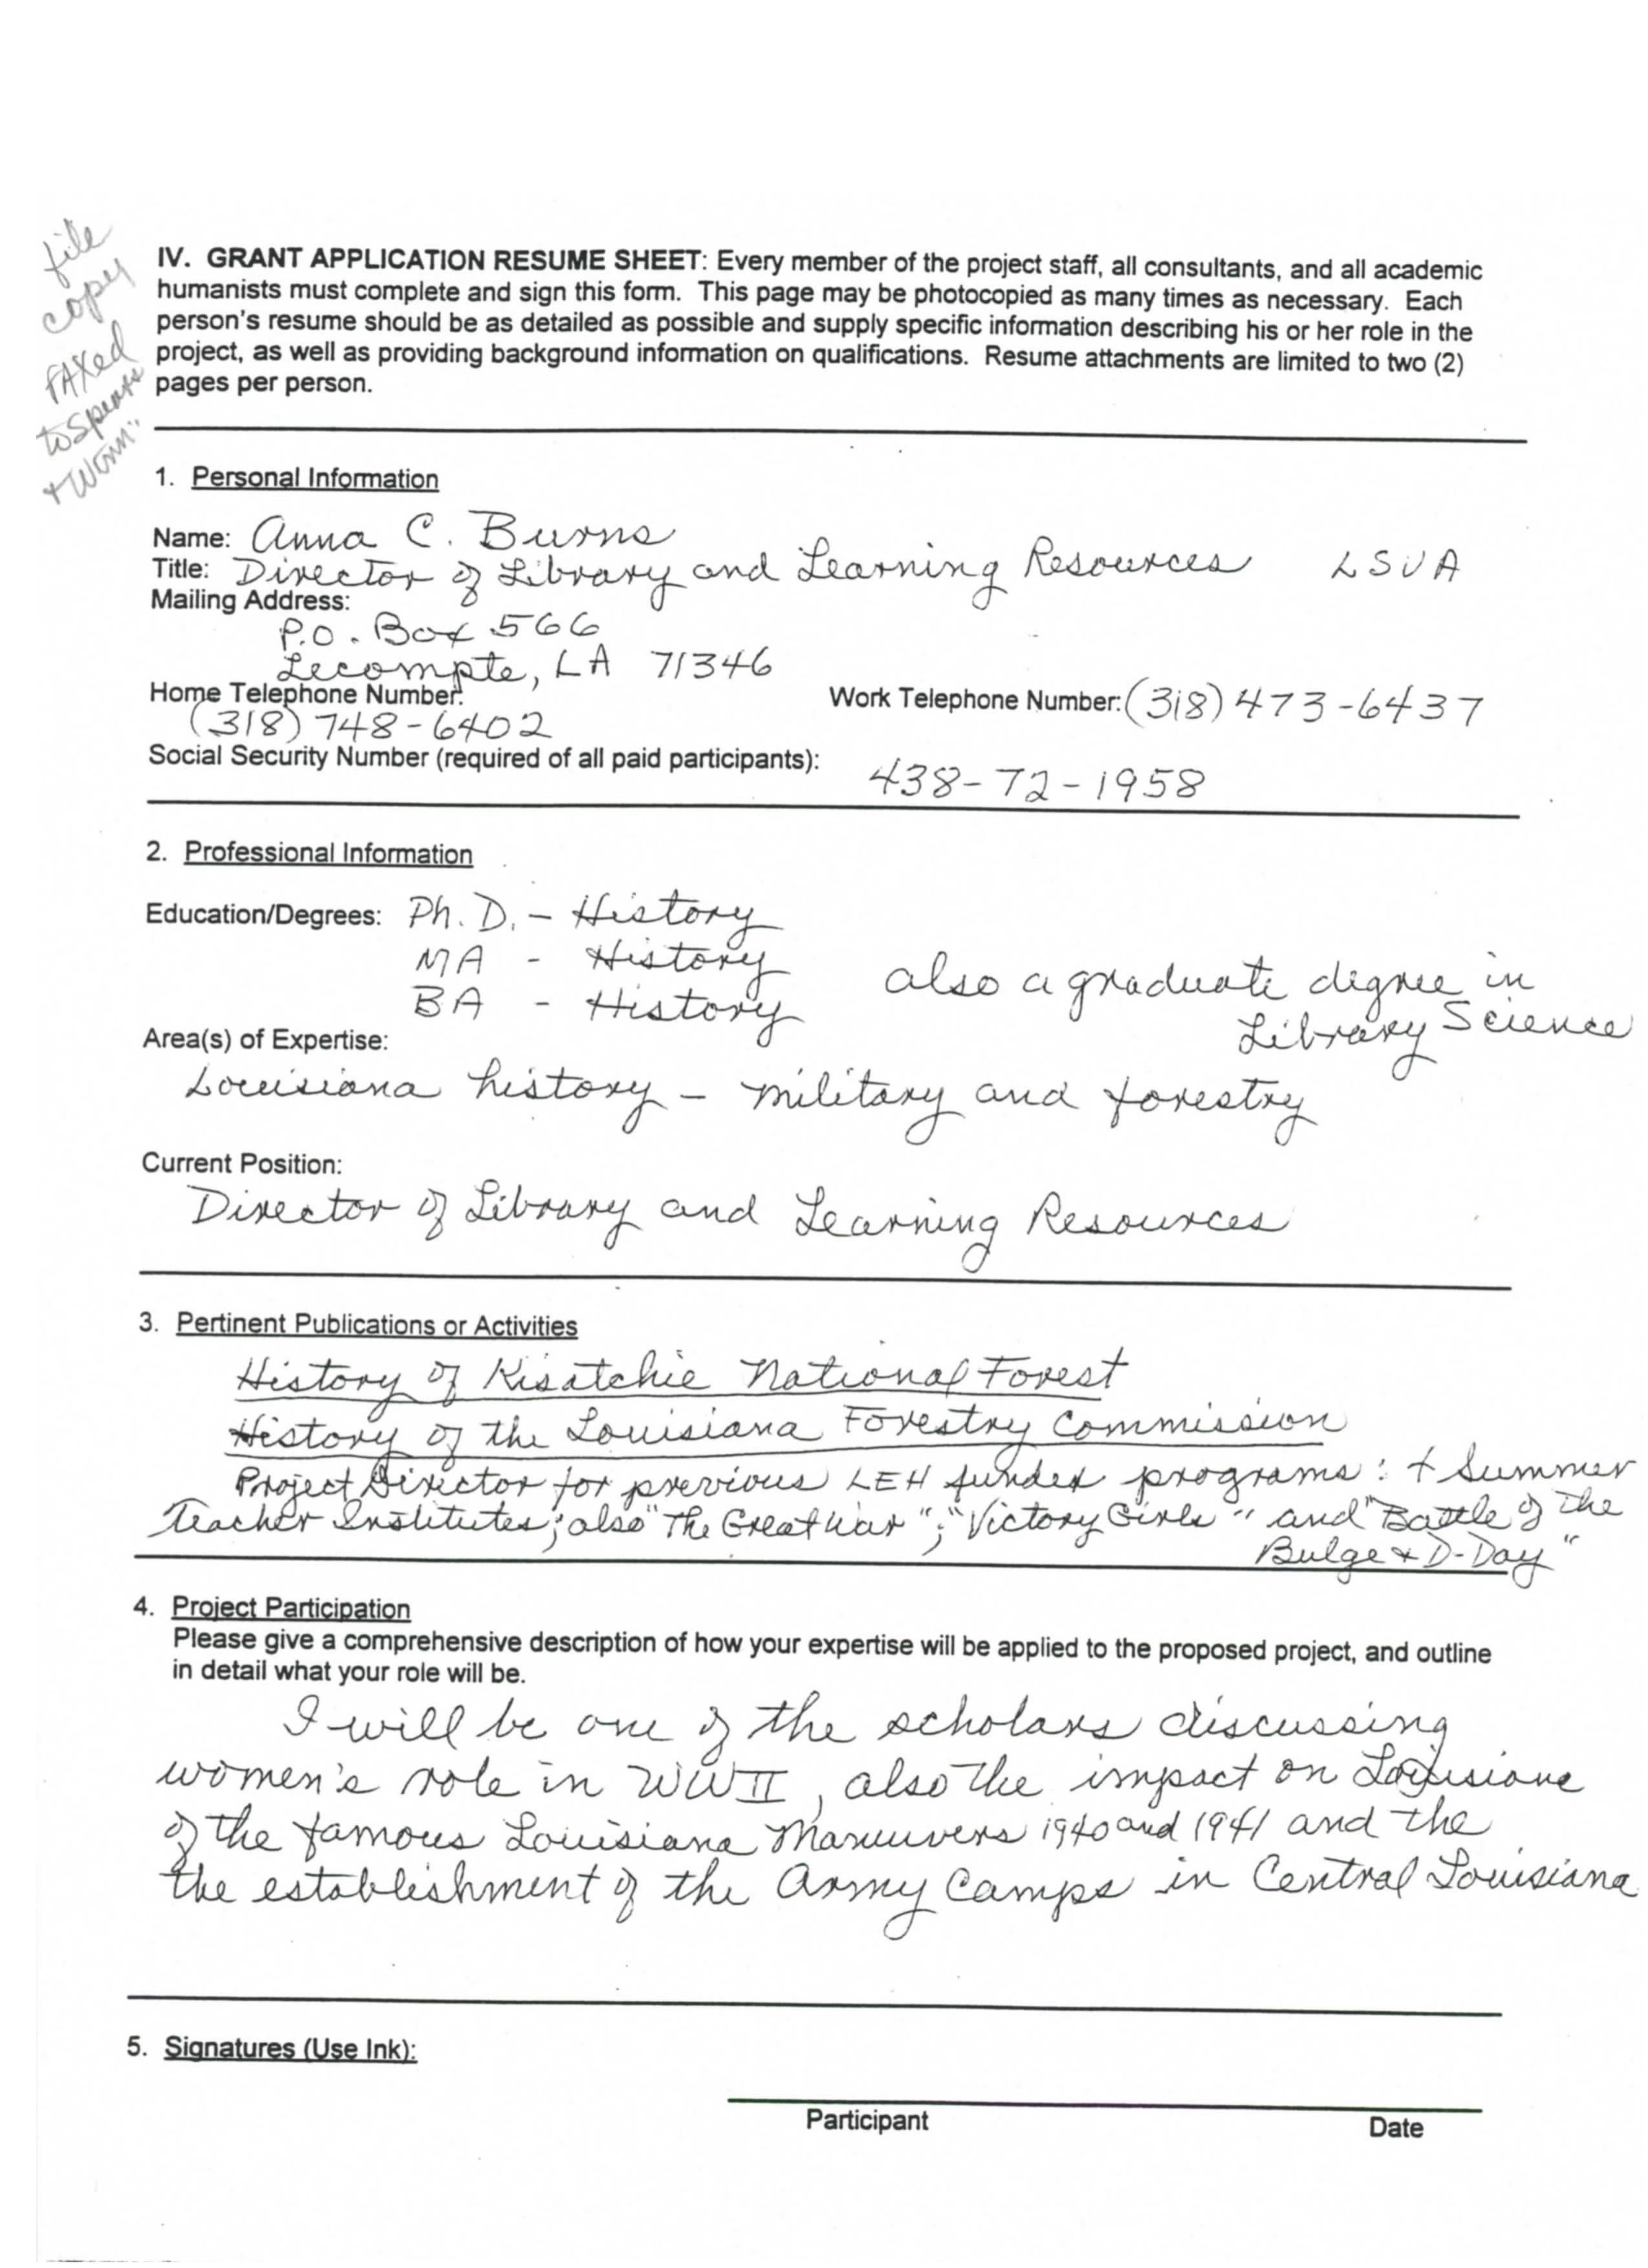 file
copy
FAXed
to Spears
+ Winn:
IV. GRANT APPLICATION RESUME SHEET: Every member of the project staff, all consultants, and all academic
humanists must complete and sign this form. This page may be photocopied as many times as necessary. Each
person's resume should be as detailed as possible and supply specific information describing his or her role in the
project, as well as providing background information on qualifications. Resume attachments are limited to two (2)
pages per person.
1. Personal Information
Name: Anna C. Burns
Title: Director of Library and Learning Resources LSUA
Mailing Address:
P.O. Box 566
Lecompte, LA 71346
Home Telephone Number: Work Telephone Number: (318) 473-6437
(318) 748-6402
Social Security Number (required of all paid participants): 438-72-1958
2. Professional Information
Education/Degrees: Ph. D. - History
MA - History also a graduate degree in
BA - History Library Science
Area(s) of Expertise:
Louisiana history - military and forestry
Current Position:
Director of Library and Learning Resources
3. Pertinent Publications or Activities
History of Kisatchie National Forest
History of the Louisiana Forestry Commission
Project Director for previous LEH funded programs: + Summer
Teacher Institutes; also "The Great War"; "Victory Girls" and "Battle of the
Bulge + D-Day"
4. Project Participation
Please give a comprehensive description of how your expertise will be applied to the proposed project, and outline
in detail what your role will be.
I will be one of the scholars discussing
women's role in WWII, also the impact on Louisiana
of the famous Louisiana Maneuvers 1940 and 1941 and the
the establishment of the Army Camps in Central Louisiana
5. Signatures (Use Ink):
Participant Date